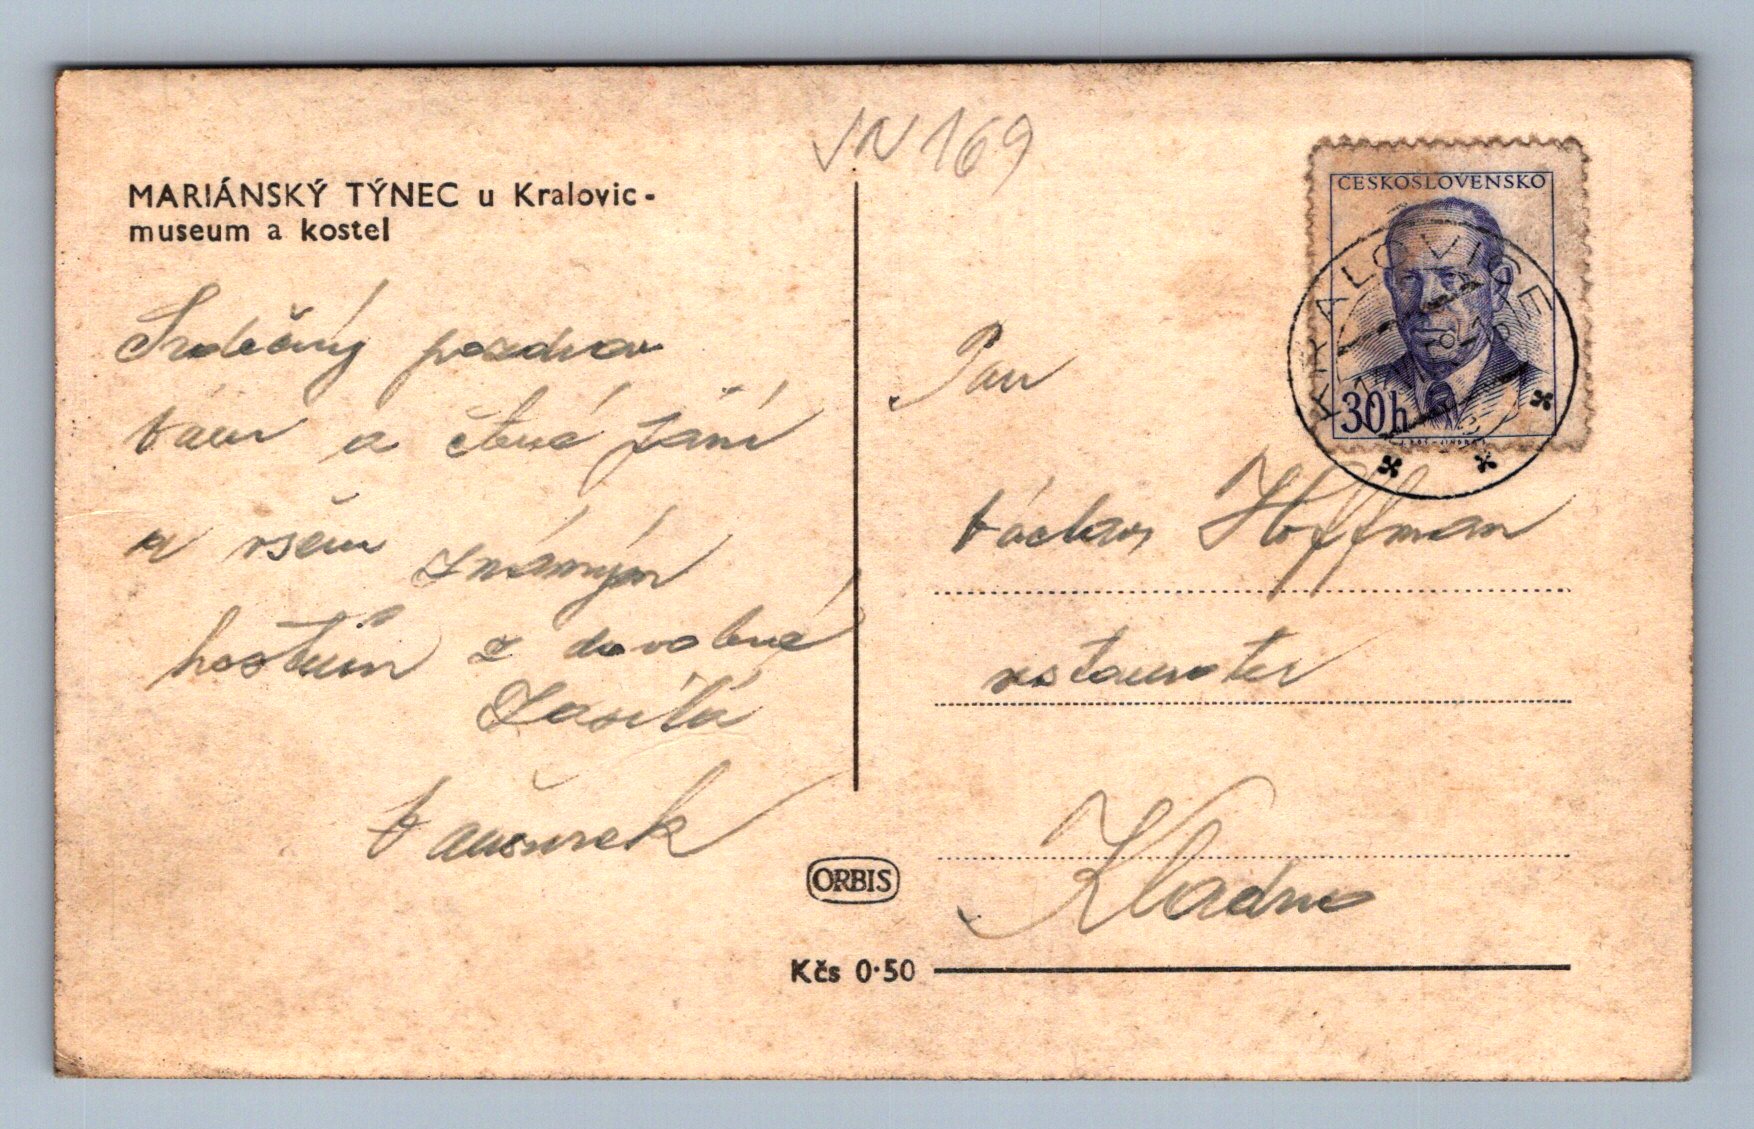 JN 169
MARIÁNSKÝ TÝNEC u Kralovic -
museum a kostel
Srdečný pozdrav
Vám a ctěné paní
a všem známým
hostům z dovolené
Zasílá
ČESKOSLOVENSKO
30h
KRALOVICE
Pan
Václav Hoffman
restaurater
Kladno
ORBIS
Kčs 0·50